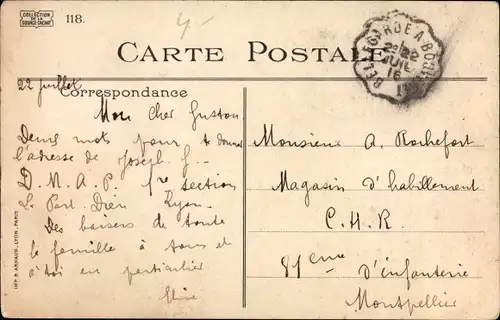 COLLECTION
DE LA
118.
CARTE POSTALE
BELLEGARDE A BOURG
2° 22
JUIL
16
22 juillet
Correspondance
Mon Cher Gaston
Deux mots pour te donner
l'adresse de Joseph G...
D. M. A. P. 1re section
La Part Dieu Lyon
Des baisers de toute
la famille à tous et
à toi en particulier
Elise
Monsieur A. Rochefort
Magasin d'habillement
C. H. R.
81eme d'infanterie
Montpellier
IMP. P. ARNAUD. LYON-PARIS